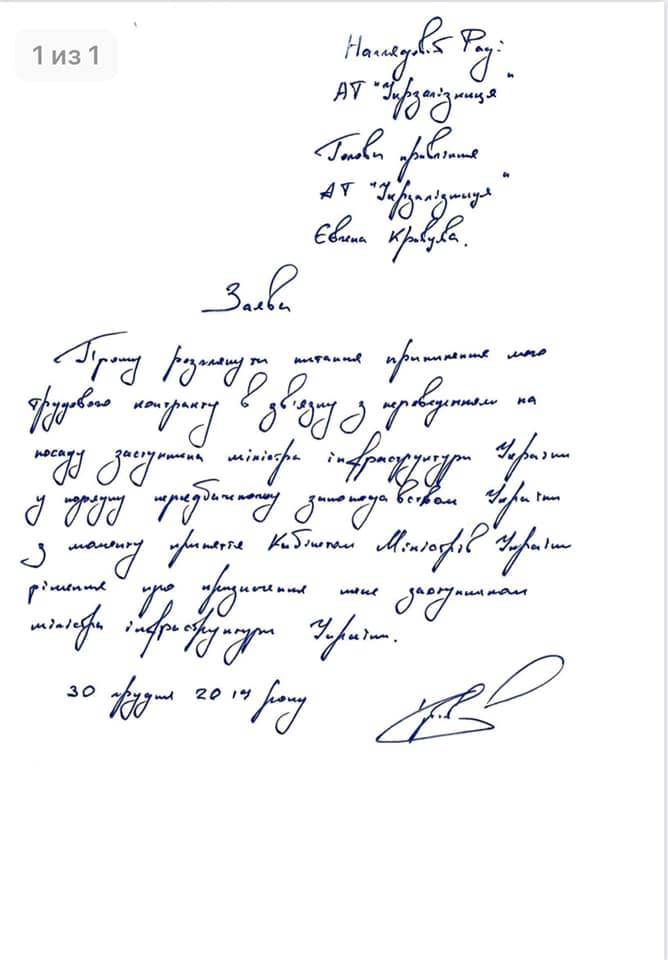 1 из 1
Наглядовій Раді
АТ "Укрзалізниця"
Голови правління
АТ "Укрзалізниця"
Євгена Кравцова.
Заява
Прошу розглянути питання припинення мого
трудового контракту в зв'язку з переведенням на
посаду заступника міністра інфраструктури України
у порядку передбаченому законодавством України
з моменту прийняття Кабінетом Міністрів України
рішення про призначення мене заступником
міністра інфраструктури України.
30 грудня 2019 року